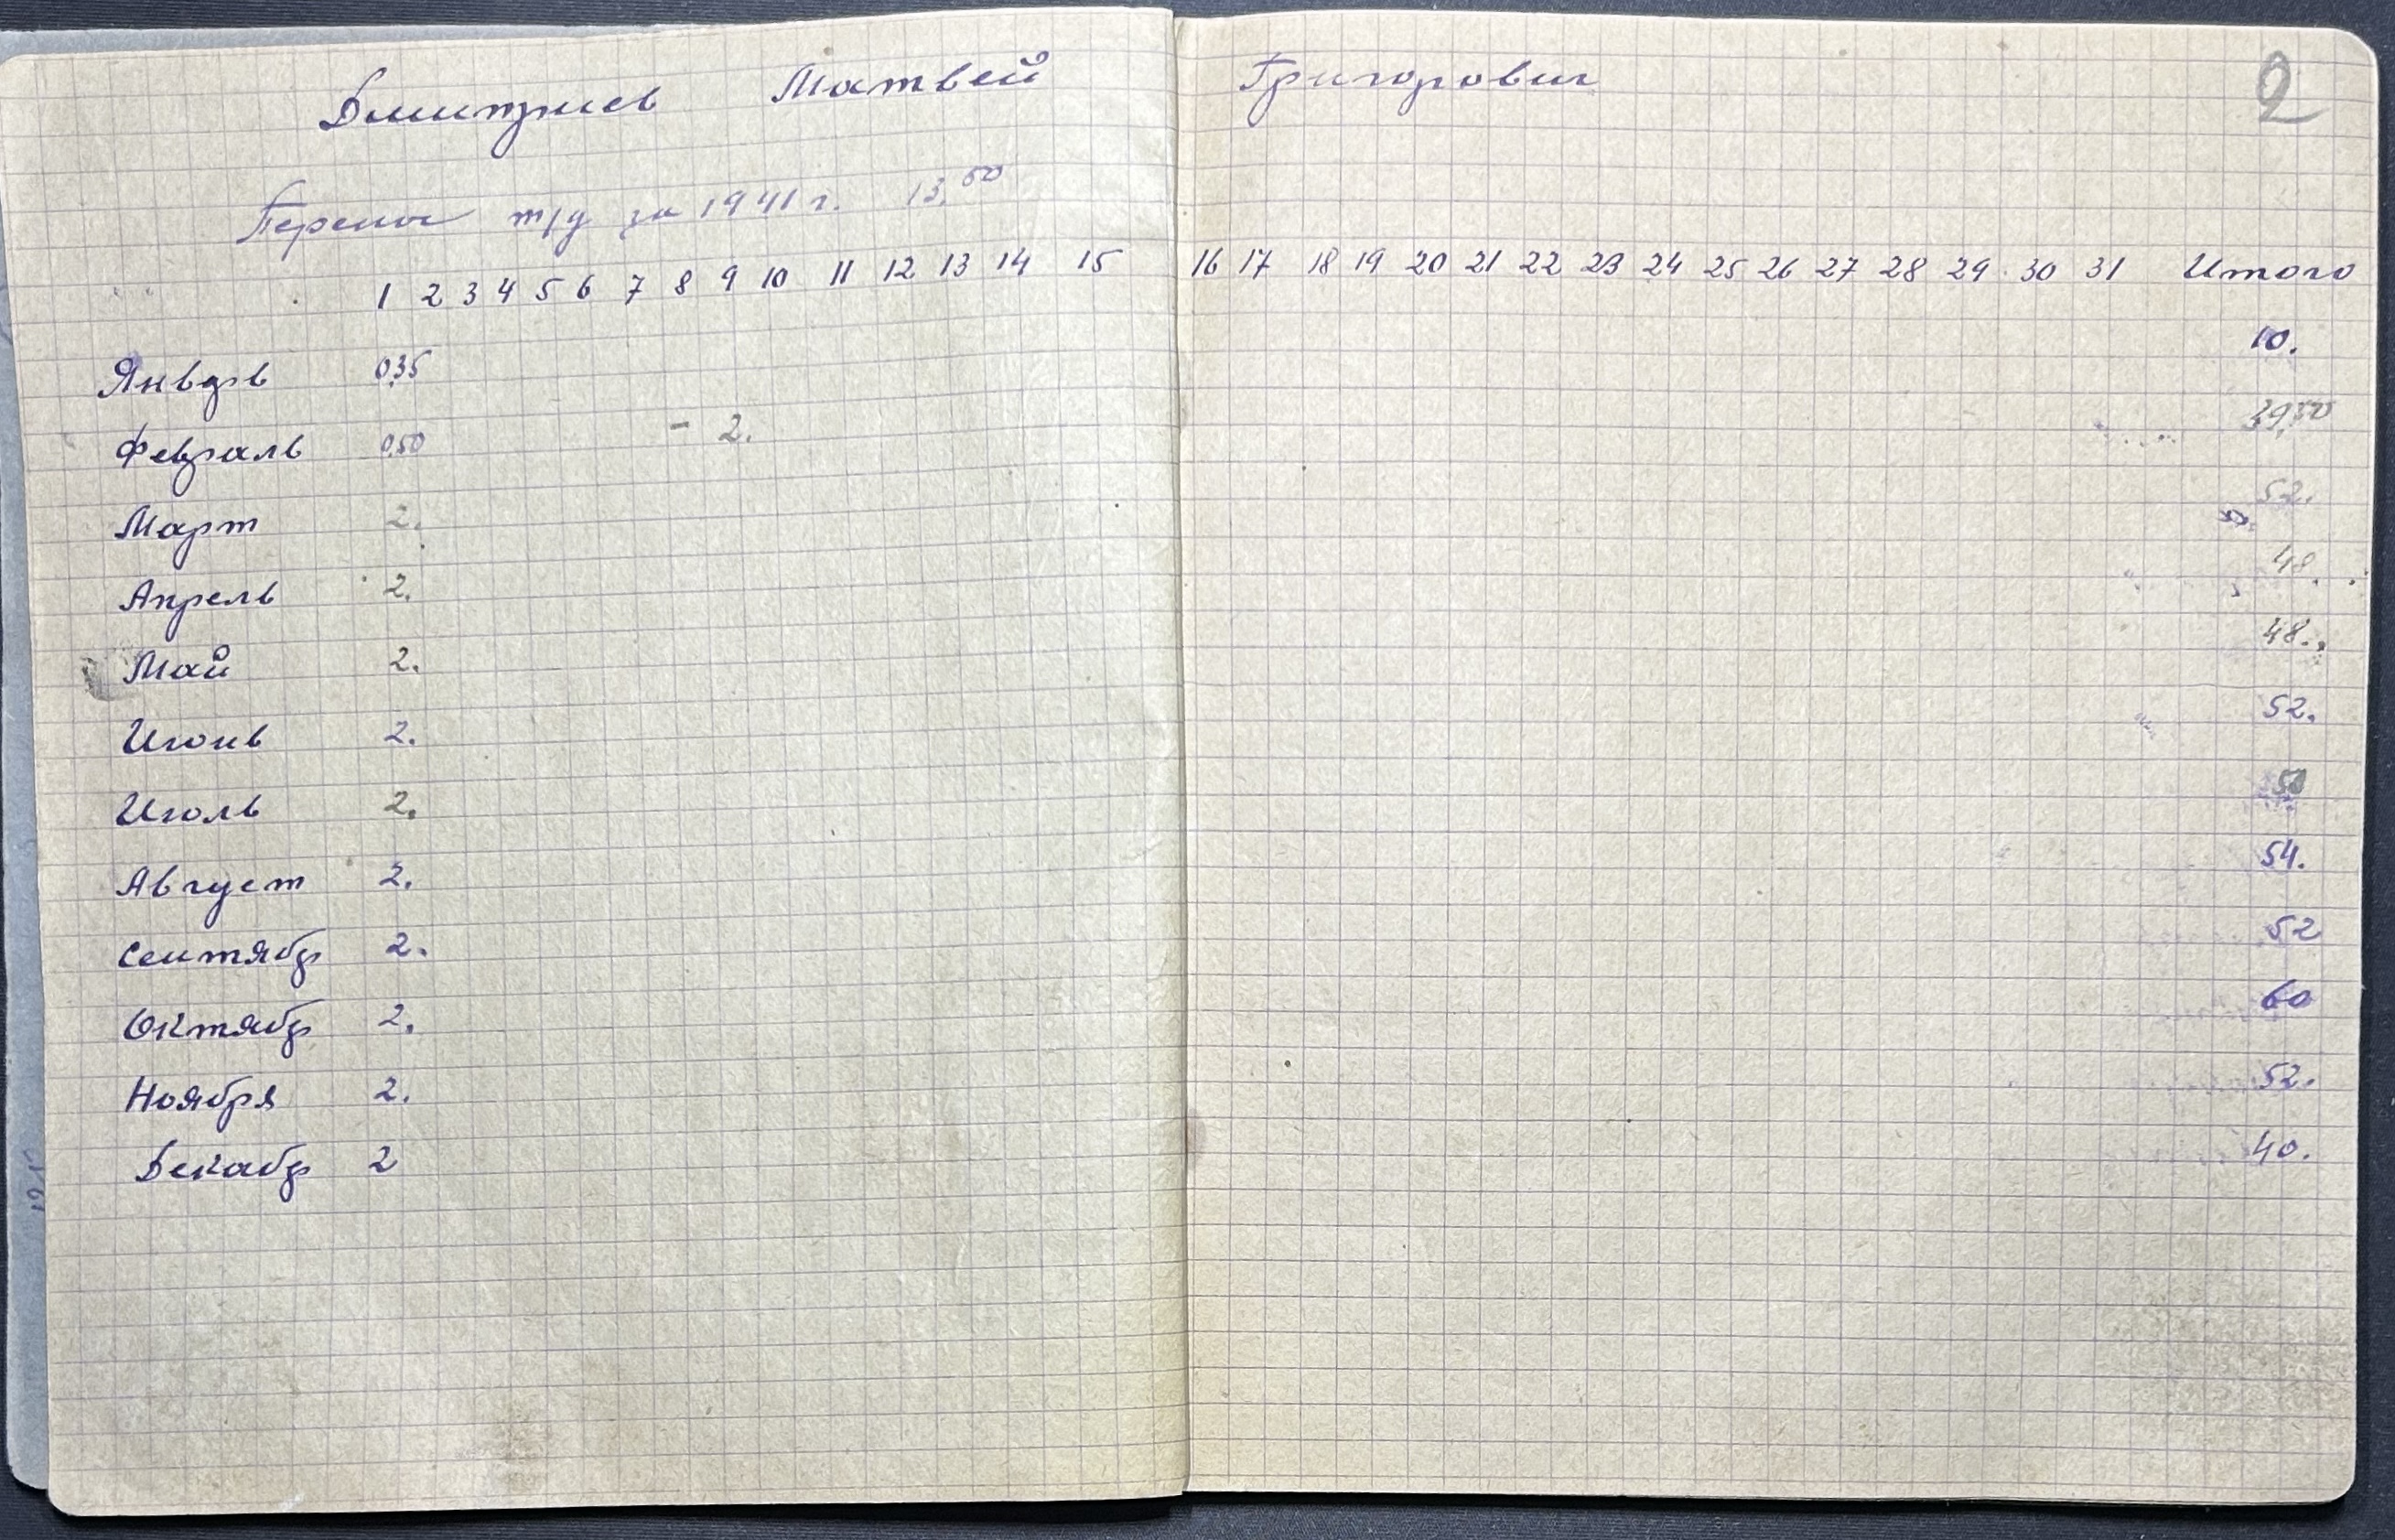 Дмитриев Матвей Григорович 2
Перенос т/д за 1941 г. 13,50
1 2 3 4 5 6 7 8 9 10 11 12 13 14 15 16 17 18 19 20 21 22 23 24 25 26 27 28 29 30 31 Итого
Январь 0,35 10.
Февраль 0,50 - 2. 39,50
Март 2. 52.
Апрель 2. 48.
Май 2. 48.
Июнь 2. 52.
Июль 2. 50
Август 2. 54.
Сентябр 2. 52
Октябр 2. 60
Ноября 2. 52.
Декабр 2 40.